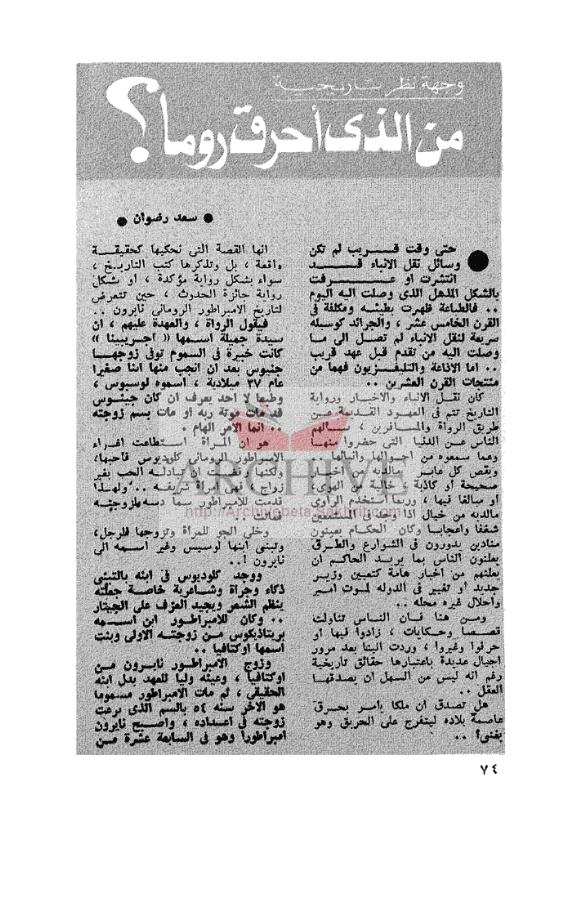 وجهة نظر تاريخية
من الذى أحرق روما؟
● سعد رضوان ●
● حتى وقت قريب لم تكن
وسائل نقل الانباء قد
انتشرت او عرفت
بالشكل المذهل الذى وصلت اليه اليوم
.. فالطباعة ظهرت بطيئه ومكلفة فى
القرن الخامس عشر ، والجرائد كوسيله
سريعة لنقل الانباء لم تصل الى ما
وصلت اليه من تقدم قبل عهد قريب
.. اما الاذاعة والتليفزيون فهما من
منتجات القرن العشرين ..
كان نقل الانباء والاخبار ورواية
التاريخ تتم فى العهود القديمة عن
طريق الرواة والمسافرين ، يسالهم
الناس عن الدنيا التى حضروا منها
وعما سمعوه من احوالها وانبائها ..
ويقص كل عابر مالديه من انباء
صحيحة او كاذبة ، خالية من الهوى
او مبالغا فيها ، وربما استخدم الراوى
مالديه من خيال اذا وجد من المنصتين
شغفا واعجابا وكان الحكام يعينون
منادين يدورون فى الشوارع والطرق
يعلنون الناس بما يريد الحاكم ان
يعلنهم من اخبار هامة كتعيين وزير
جديد او تغيير فى الدوله لموت امير
واحلال غيره محله ..
ومن هنا فان الناس تناولت
قصصا وحكايات ، زادوا فيها او
حرفوا وغيروا ، وردت الينا بعد مرور
اجيال عديدة باعتبارها حقائق تاريخية
رغم انه ليس من السهل ان يصدقها
العقل ..
هل تصدق ان ملكا يامر بحرق
عاصمة بلاده ليتفرج على الحريق وهو
يغنى! ..
انها القصة التى نحكيها كحقيقة
واقعة ، بل وتذكرها كتب التاريخ ،
سواء بشكل رواية مؤكدة ، او بشكل
رواية جائزة الحدوث ، حين تتعرض
لتاريخ الامبراطور الرومانى نايرون ..
فيقول الرواة ، والعهدة عليهم ، ان
سيدة جميلة اسمها « اجريبينا »
كانت خبيرة فى السموم توفى زوجها
جنيوس بعد ان انجب منها ابنا صغيرا
عام ٣٧ ميلادية ، اسموه لوسيوس ،
وطبعا لا احد يعرف ان كان جينوس
قد مات موتة ربه او مات بسم زوجته
.. انها الامر الهام ..
هو ان المراة استطاعت اغراء
الامبراطور الرومانى كلوديوس فاحبها،
ولكنها رفضت ان تبادله الحب بغير
زواج ، فهى امراة شريفه .. ولهذا
قدمت للامبراطور سما دسه لزوجته
فماتت ..
وخلى الجو للمراة وتزوجها الرجل،
وتبنى ابنها لوسيس وغير اسمه الى
نايرون !..
ووجد كلوديوس فى ابنه بالتبنى
ذكاء وجراة وشاعرية خاصة جعلته
ينظم الشعر ويجيد العزف على الجيتار
.. وكان للامبراطور ابن اسمه
بريتاتيكوس من زوجته الاولى وبنت
اسمها اوكتافيا ..
وزوج الامبراطور نايرون من
اوكتافيا ، وعينه وليا للعهد بدل ابنه
الحقيقى ، ثم مات الامبراطور مسموما
هو الاخر سنه ٥٤ بالسم الذى برعت
زوجته فى اعداده ، واصبح نايرون
امبراطورا وهو فى السابعة عشرة من
ARCHIVE
http://Archivebeta.Sakhrit.com
٧٤